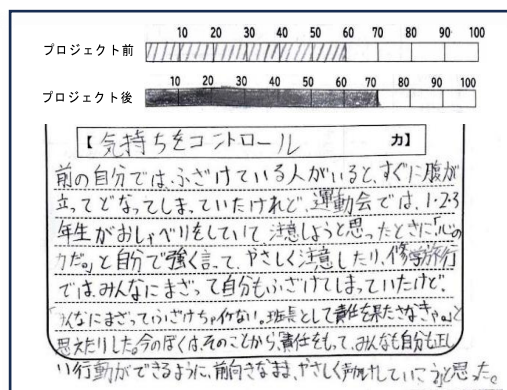 10 20 30 40 50 60 70 80 90 100
プロジェクト前
10 20 30 40 50 60 70 80 90 100
プロジェクト後
【気持ちをコントロール 力】
前の自分では、ふざけている人がいると、すぐに腹が
立ってどなってしまっていたけれど、運動会では、1・2・3
年生がおしゃべりをしていて、注意しようと思ったときに「心の
力だ。」と自分で強く言って、やさしく注意したり、修学旅行
では、みんなにまざって自分もふざけてしまっていたけど、
「みんなにまざってふざけちゃイケない。班長として責任を果たさなきゃ。」と
思えたりした。今のぼくは、そのことから、責任をもって、みんなも自分も正し
い行動ができるように、前向きなまま、やさしく声かけしていこうと思った。